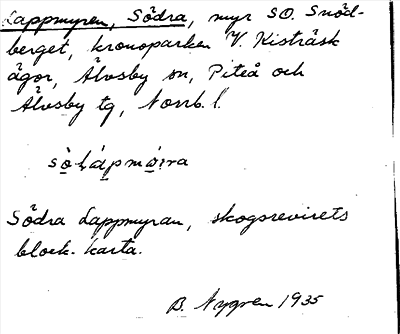 Lappmyren, Södra, myr SO. Snöd-
berget, kronoparken V. Kisträsk
ägor, Älvsby sn, Piteå och
Älvsby tg, Norrb. l.
Södra Lappmyran, skogsrevirets
block-karta.
B. Nygren 1935